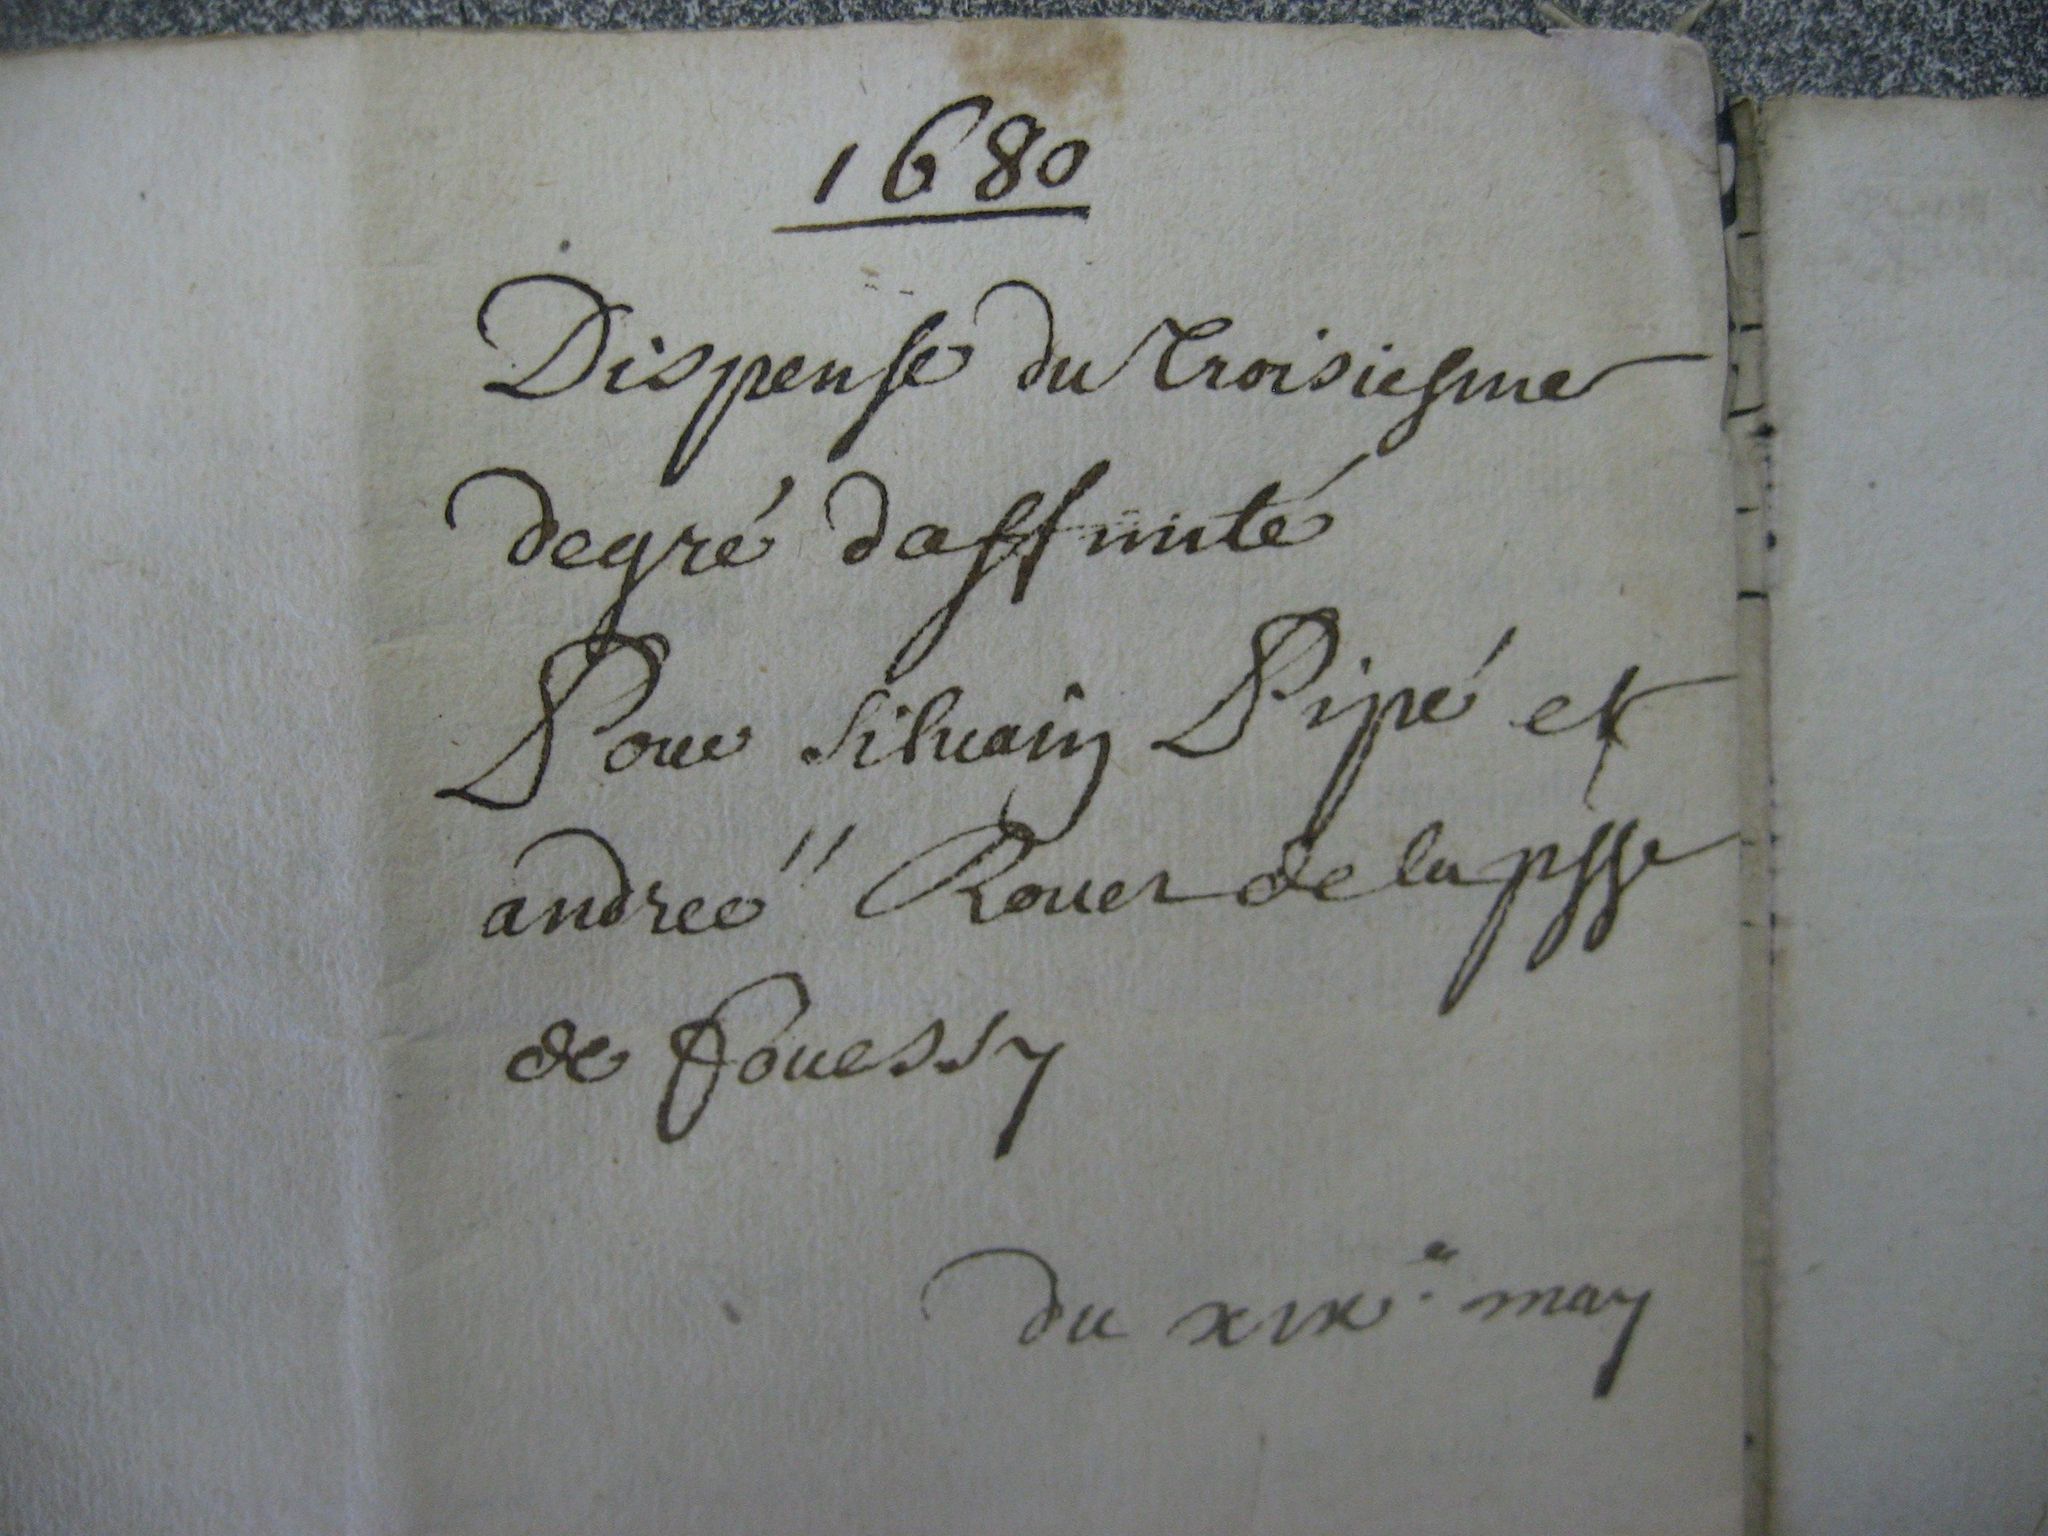 1680
Dispense du troisiesme
degré daffinité
Pour silvain Pipé et
andreé Rouer de la psse
de Jouessy
du xixe may